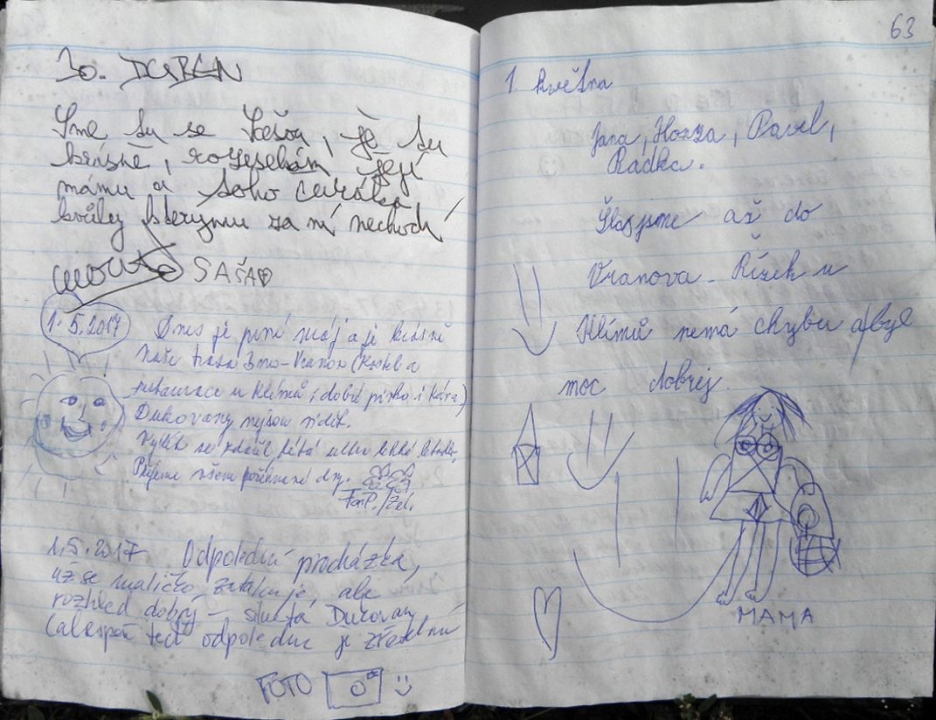 30. DUBEN
Sme tu se , je tu
krásně, její
mámu a toho
kvůli kterýmu za ní nechodí
SAŠA♡
1.5.2017 Dnes je první máj a je krásně
Naše trasa Brno-Vranov (kostel a
restaurace u Klímů, dobré pivko i káva)
Dukovany nejsou vidět.
Výlet se vydařil,
Přejeme všem pohodové dny.
1.5.2017 Odpolední procházka,
už se maličko zatahuje, ale
rozhled dobrý – Dukovany
(alespoň teď odpoledne je zřetelně
FOTO :)
63
1. května
Jana, Honza, Pavel,
Radka.
Šli jsme až do
Vranova. Řízek u
Klímů nemá chybu a byl
moc dobrej.
MAMA